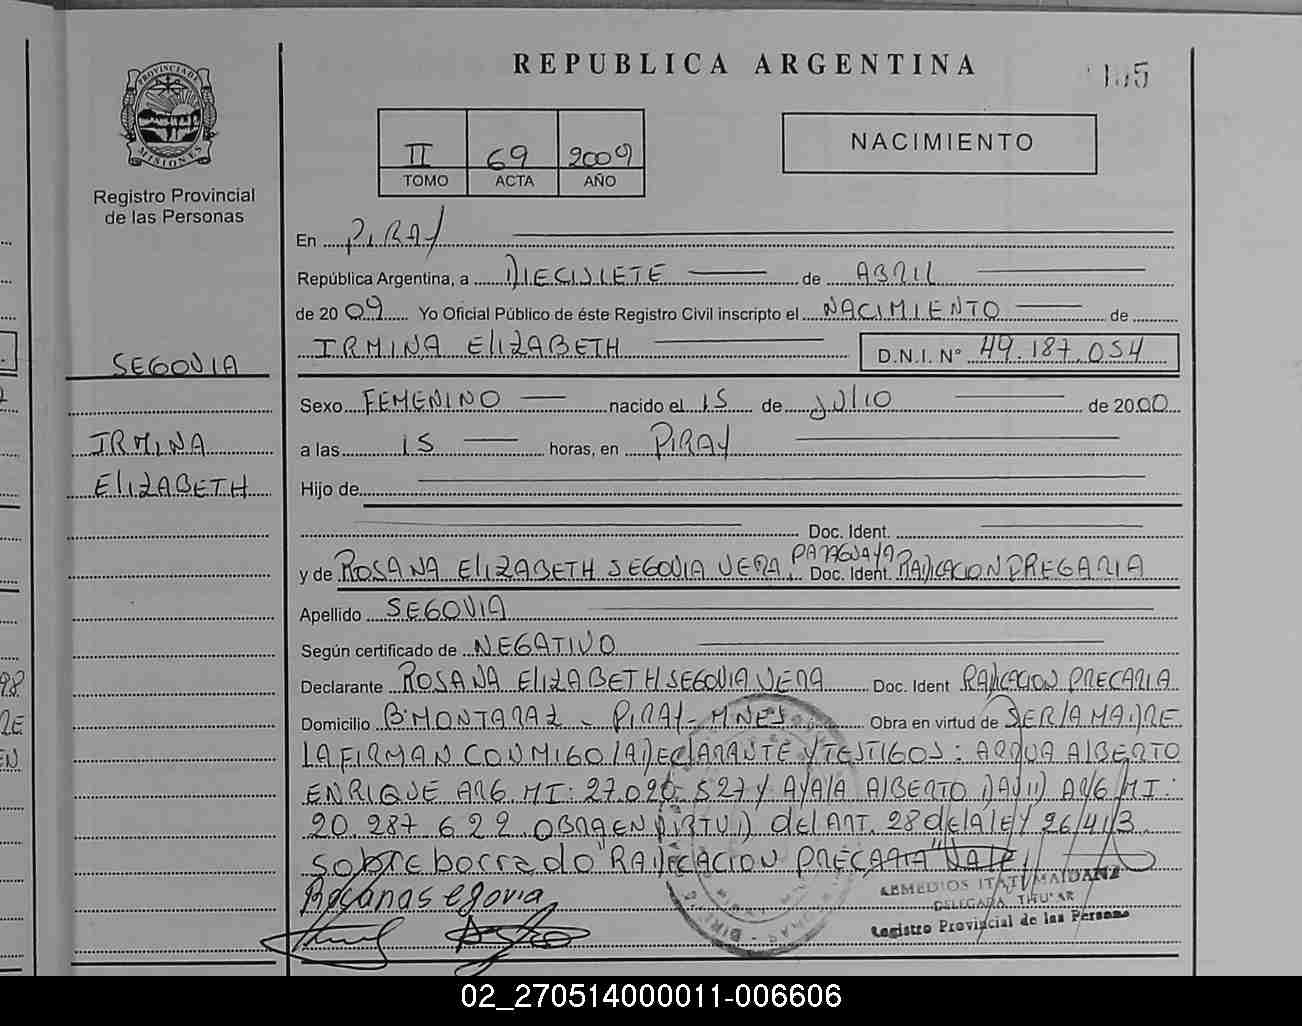 REPUBLICA ARGENTINA
105
PROVINCIA DE
MISIONES
Registro Provincial
de las Personas
II 69 2009
TOMO ACTA AÑO
NACIMIENTO
En PIRAY
República Argentina, a DIECISIETE de ABRIL
de 2009 Yo Oficial Público de éste Registro Civil inscripto el NACIMIENTO de
IRMINA ELIZABETH D.N.I. Nº 49.187.054
SEGOVIA
IRMINA
ELIZABETH
Sexo FEMENINO nacido el 15 de JULIO de 2000
a las 15 horas, en PIRAY
Hijo de
Doc. Ident.
y de ROSANA ELIZABETH SEGOVIA VERA, PARAGUAYA Doc. Ident. RADICACION PREGARIA
Apellido SEGOVIA
Según certificado de NEGATIVO
Declarante ROSANA ELIZABETH SEGOVIA VERA Doc. Ident RADICACION PRECARIA
Domicilio Bº MONTARAZ - PIRAY - MNES Obra en virtud de SER LA MADRE
LA FIRMAN CONMIGO LA DECLARANTE Y TESTIGOS: ARQUA ALBERTO
ENRIQUE ARG. MI: 27.020.527 Y AYALA ALBERTO DAVID ARG. MI:
20.287.622 OBRA EN VIRTUD DEL ART. 28 de la ley 26.413.
sobre borrado "RADICACION PRECARIA" VALE
Rosana Segovia
REMEDIOS ITATI MAIDANZ
DELEGADA TITULAR
Registro Provincial de las Personas
02_270514000011-006606